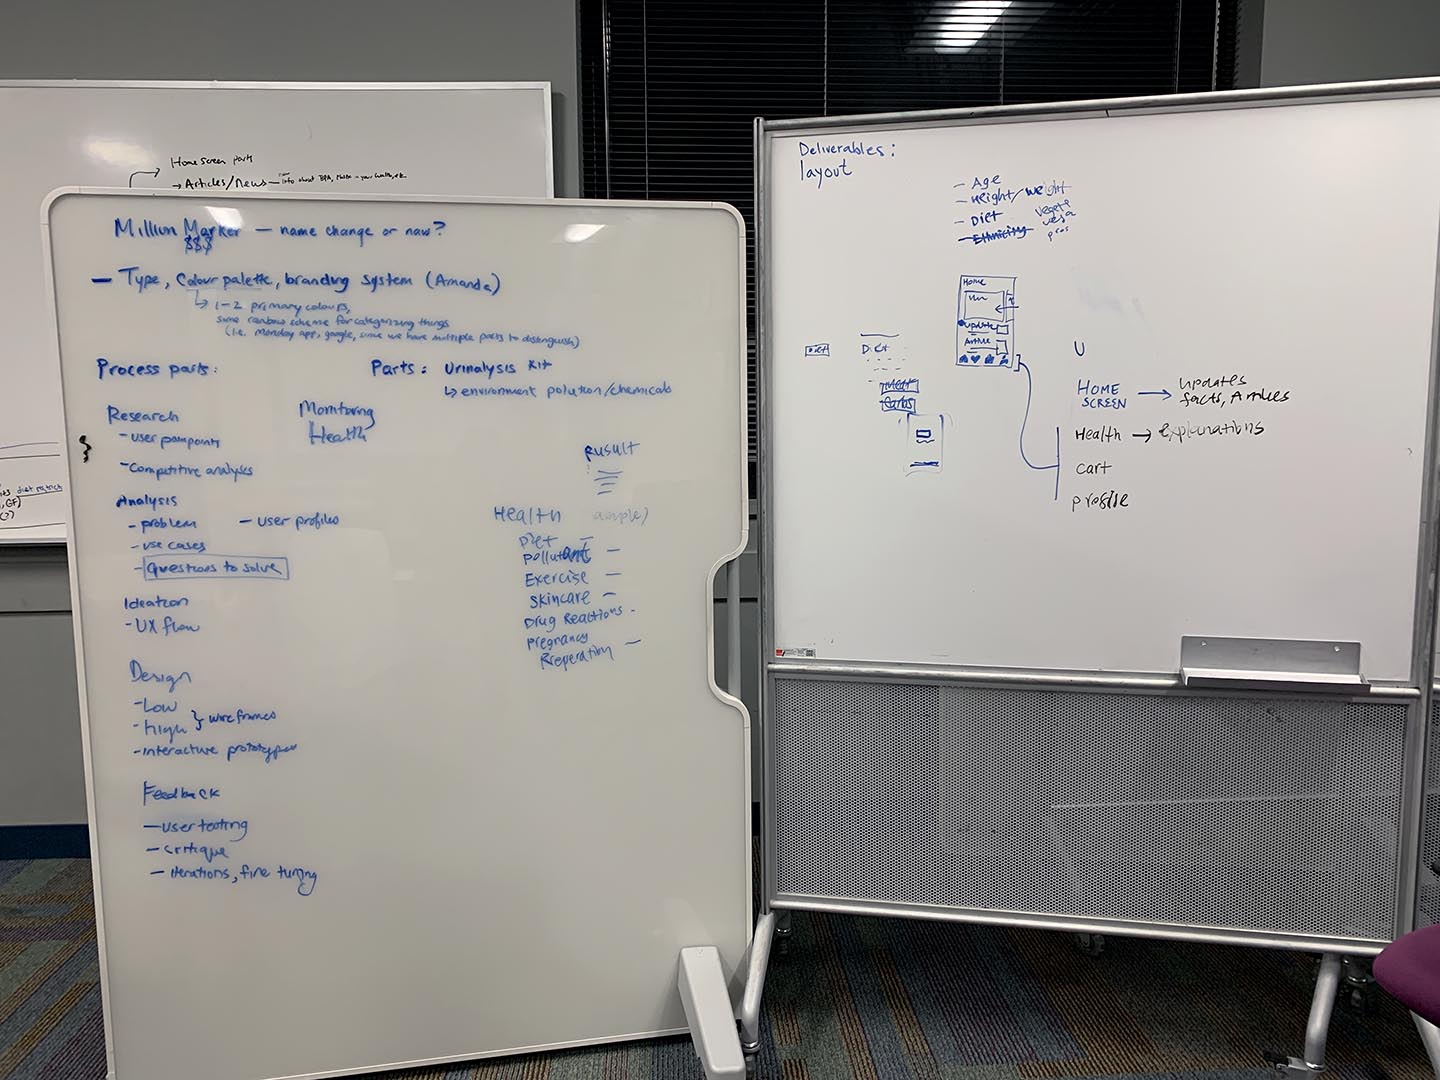 Home Screen parts
→ Articles/News — info about BPA,
diet restrict
, GF)
Million Marker — name change or naw?
$$$
— Type, Colour palette, branding system (Amanda)
↳ 1-2 primary colours,
some rainbow scheme for categorizing things
(i.e. Monday app, google, since we have multiple parts to distinguish)
Process parts:
Research
- user painpoints
- Competitive analyses
Analysis
- problem - user profiles
- use cases
- Questions to solve
Ideation
- UX flow
Design
- Low
- high } wireframes
- interactive prototypes
Feedback
- user testing
- critique
- iterations, fine tuning
Parts: Urinalysis Kit
↳ environment polution/chemicals
Monitoring
Health
Result
Health
Diet —
Pollutants —
Exercise —
Skincare —
Drug Reactions -
Pregnancy
Preperation —
Deliverables:
layout
- Age
- Height/Weight
- Diet
- Ethnicity
Home
update
Article
Diet
Diet
Meat
Carbs
U
HOME SCREEN → updates
facts, Articles
Health → explanations
cart
profile